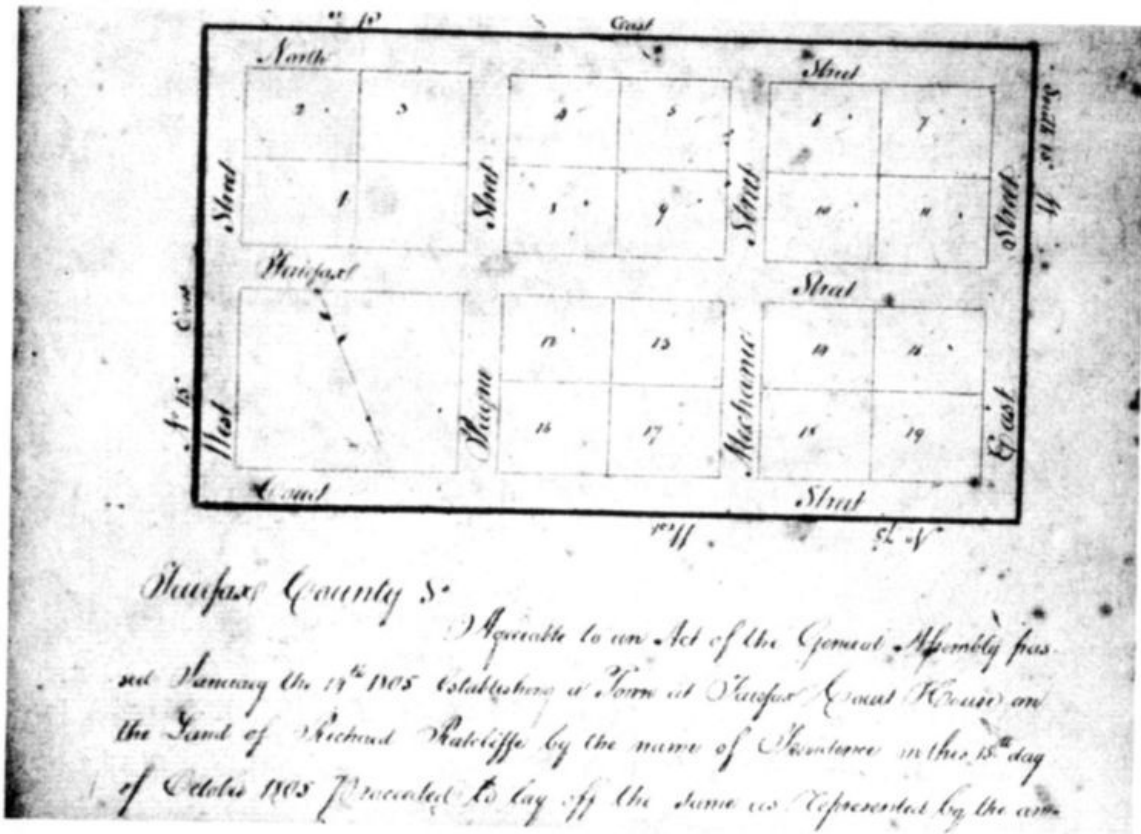 East
North Street
2 3 4 5 6 7
Street Street Street Street
1 8 9 10 11
Fairfax Street
12 13 14 15
West Payne Mechanic East
16 17 18 19
Court Street
West No 75
South 15
No 15 West
Fairfax County Sc
Agreeable to an Act of the General Assembly pas-
sed January the 14th 1805 Establishing a Town at Fairfax Court House on
the Land of Richard Ratcliffe by the name of Providence on this 15th day
of October 1805 I proceeded to lay off the same as Represented by the